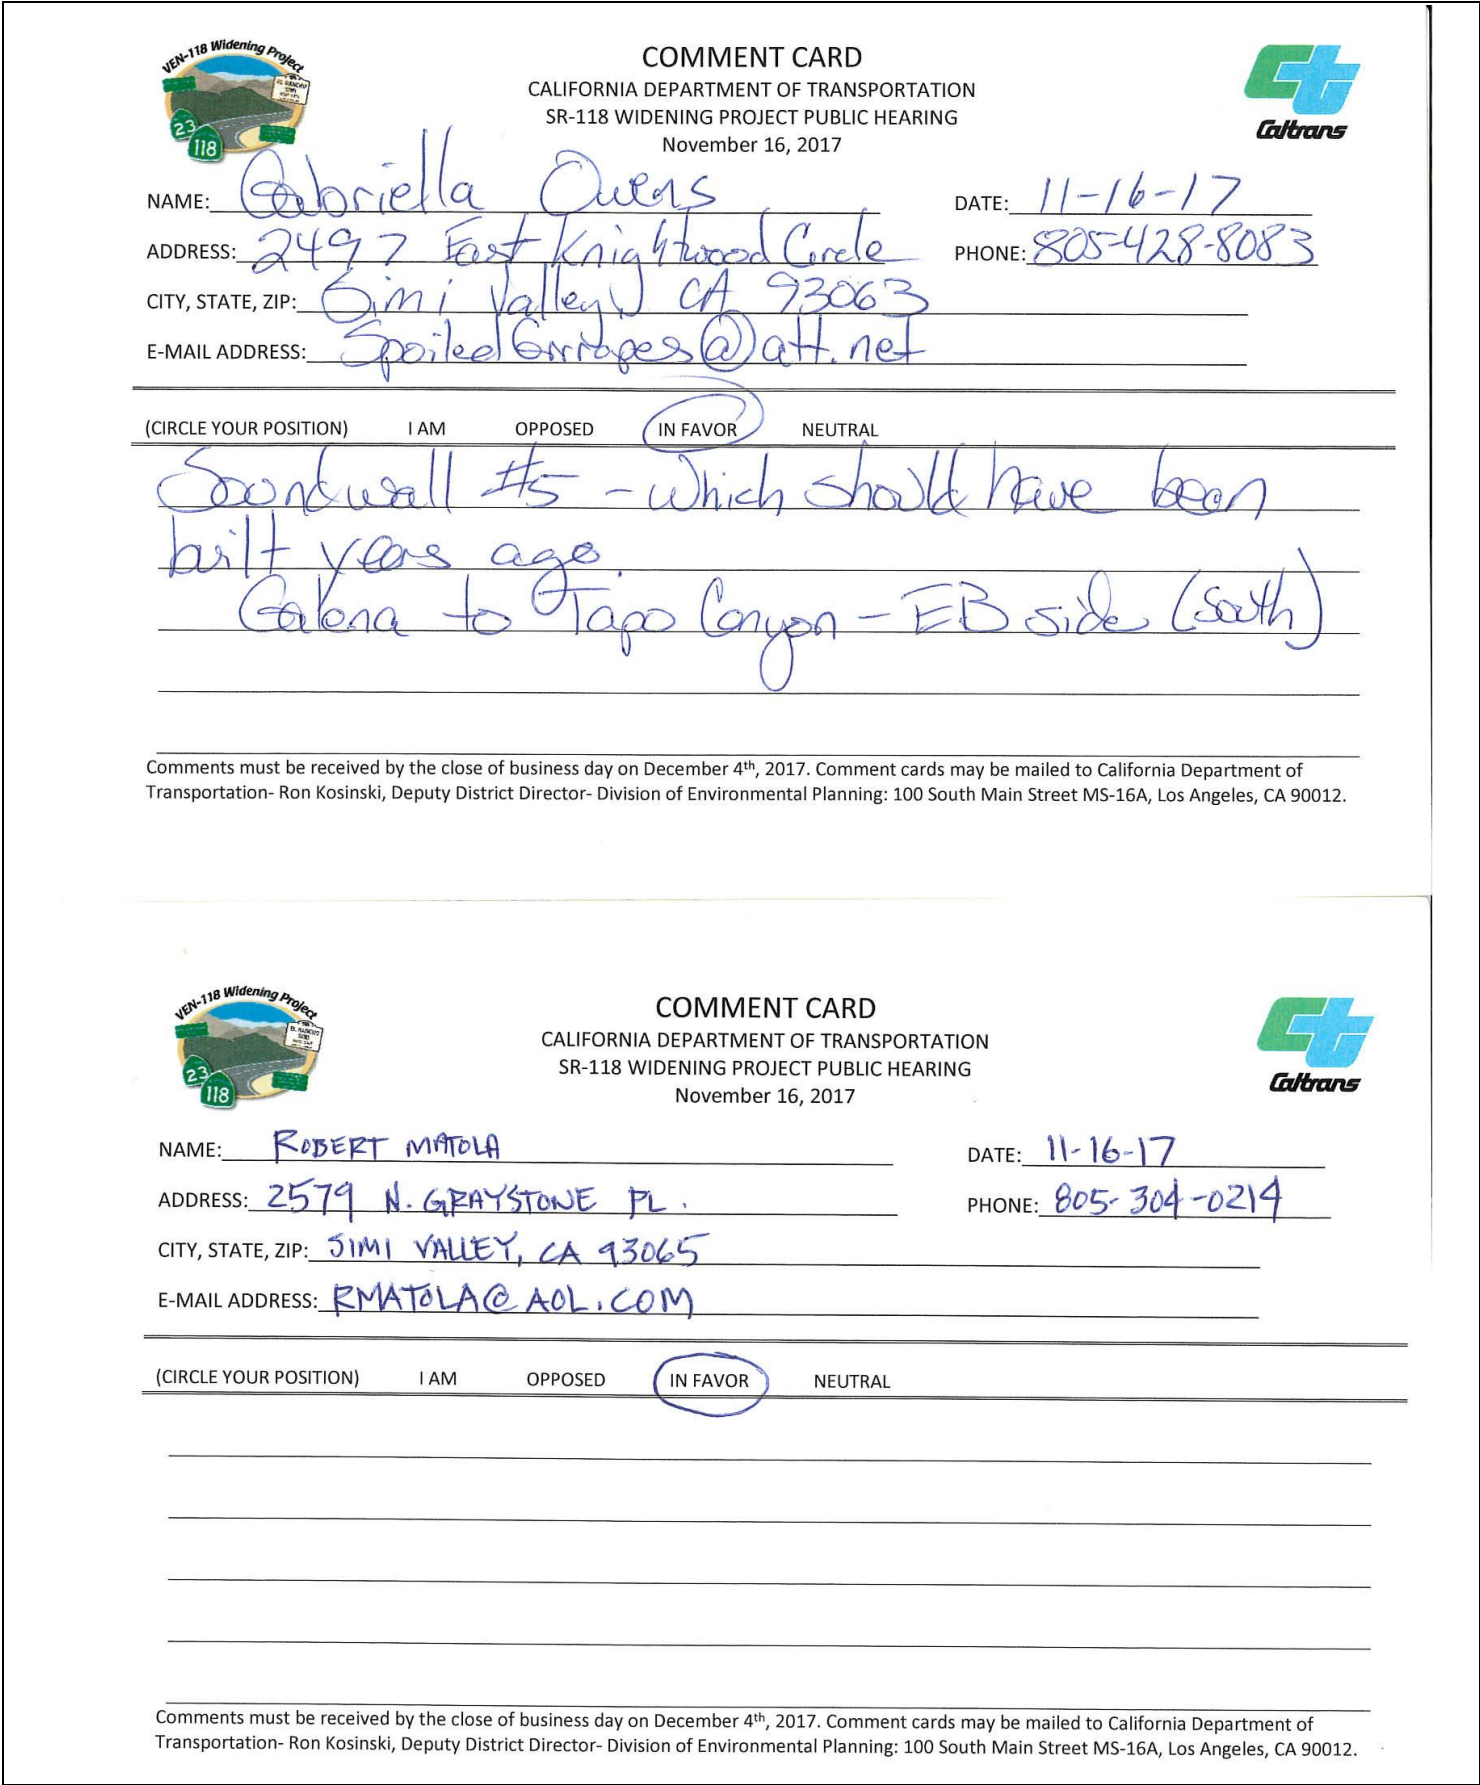 VEN-118 Widening Project
23
118
COMMENT CARD
CALIFORNIA DEPARTMENT OF TRANSPORTATION
SR-118 WIDENING PROJECT PUBLIC HEARING
November 16, 2017
Caltrans
NAME: Gabriella Owens DATE: 11-16-17
ADDRESS: 2497 East Knightwood Circle PHONE: 805-428-8083
CITY, STATE, ZIP: Simi Valley, CA 93063
E-MAIL ADDRESS: @att.net
(CIRCLE YOUR POSITION) I AM OPPOSED IN FAVOR NEUTRAL
Soundwall #5 - which should have been
built years ago.
Galena to Tapo Canyon - EB side (South)
Comments must be received by the close of business day on December 4th, 2017. Comment cards may be mailed to California Department of
Transportation- Ron Kosinski, Deputy District Director- Division of Environmental Planning: 100 South Main Street MS-16A, Los Angeles, CA 90012.
VEN-118 Widening Project
23
118
COMMENT CARD
CALIFORNIA DEPARTMENT OF TRANSPORTATION
SR-118 WIDENING PROJECT PUBLIC HEARING
November 16, 2017
Caltrans
NAME: ROBERT MATOLA DATE: 11-16-17
ADDRESS: 2579 N. GRAYSTONE PL. PHONE: 805-304-0214
CITY, STATE, ZIP: SIMI VALLEY, CA 93065
E-MAIL ADDRESS: RMATOLA@AOL.COM
(CIRCLE YOUR POSITION) I AM OPPOSED IN FAVOR NEUTRAL
Comments must be received by the close of business day on December 4th, 2017. Comment cards may be mailed to California Department of
Transportation- Ron Kosinski, Deputy District Director- Division of Environmental Planning: 100 South Main Street MS-16A, Los Angeles, CA 90012.